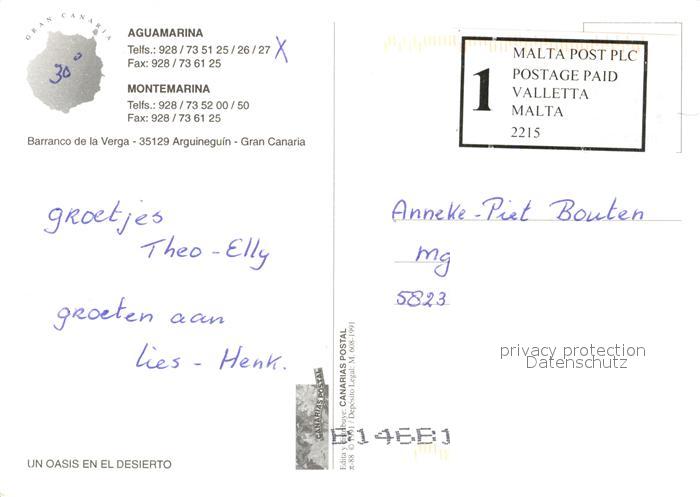 GRAN CANARIA
30°
AGUAMARINA
Telfs.: 928 / 73 51 25 / 26 / 27 X
Fax: 928 / 73 61 25
MONTEMARINA
Telfs.: 928 / 73 52 00 / 50
Fax: 928 / 73 61 25
Barranco de la Verga - 35129 Arguineguín - Gran Canaria
groetjes
Theo - Elly
groeten aan
Lies - Henk.
UN OASIS EN EL DESIERTO
CANARIAS POSTAL
CANARIAS POSTAL
Depósito Legal: M. 608-1991
1
MALTA POST PLC
POSTAGE PAID
VALLETTA
MALTA
2215
Anneke - Piet Bouten
mg
5823
privacy protection
Datenschutz